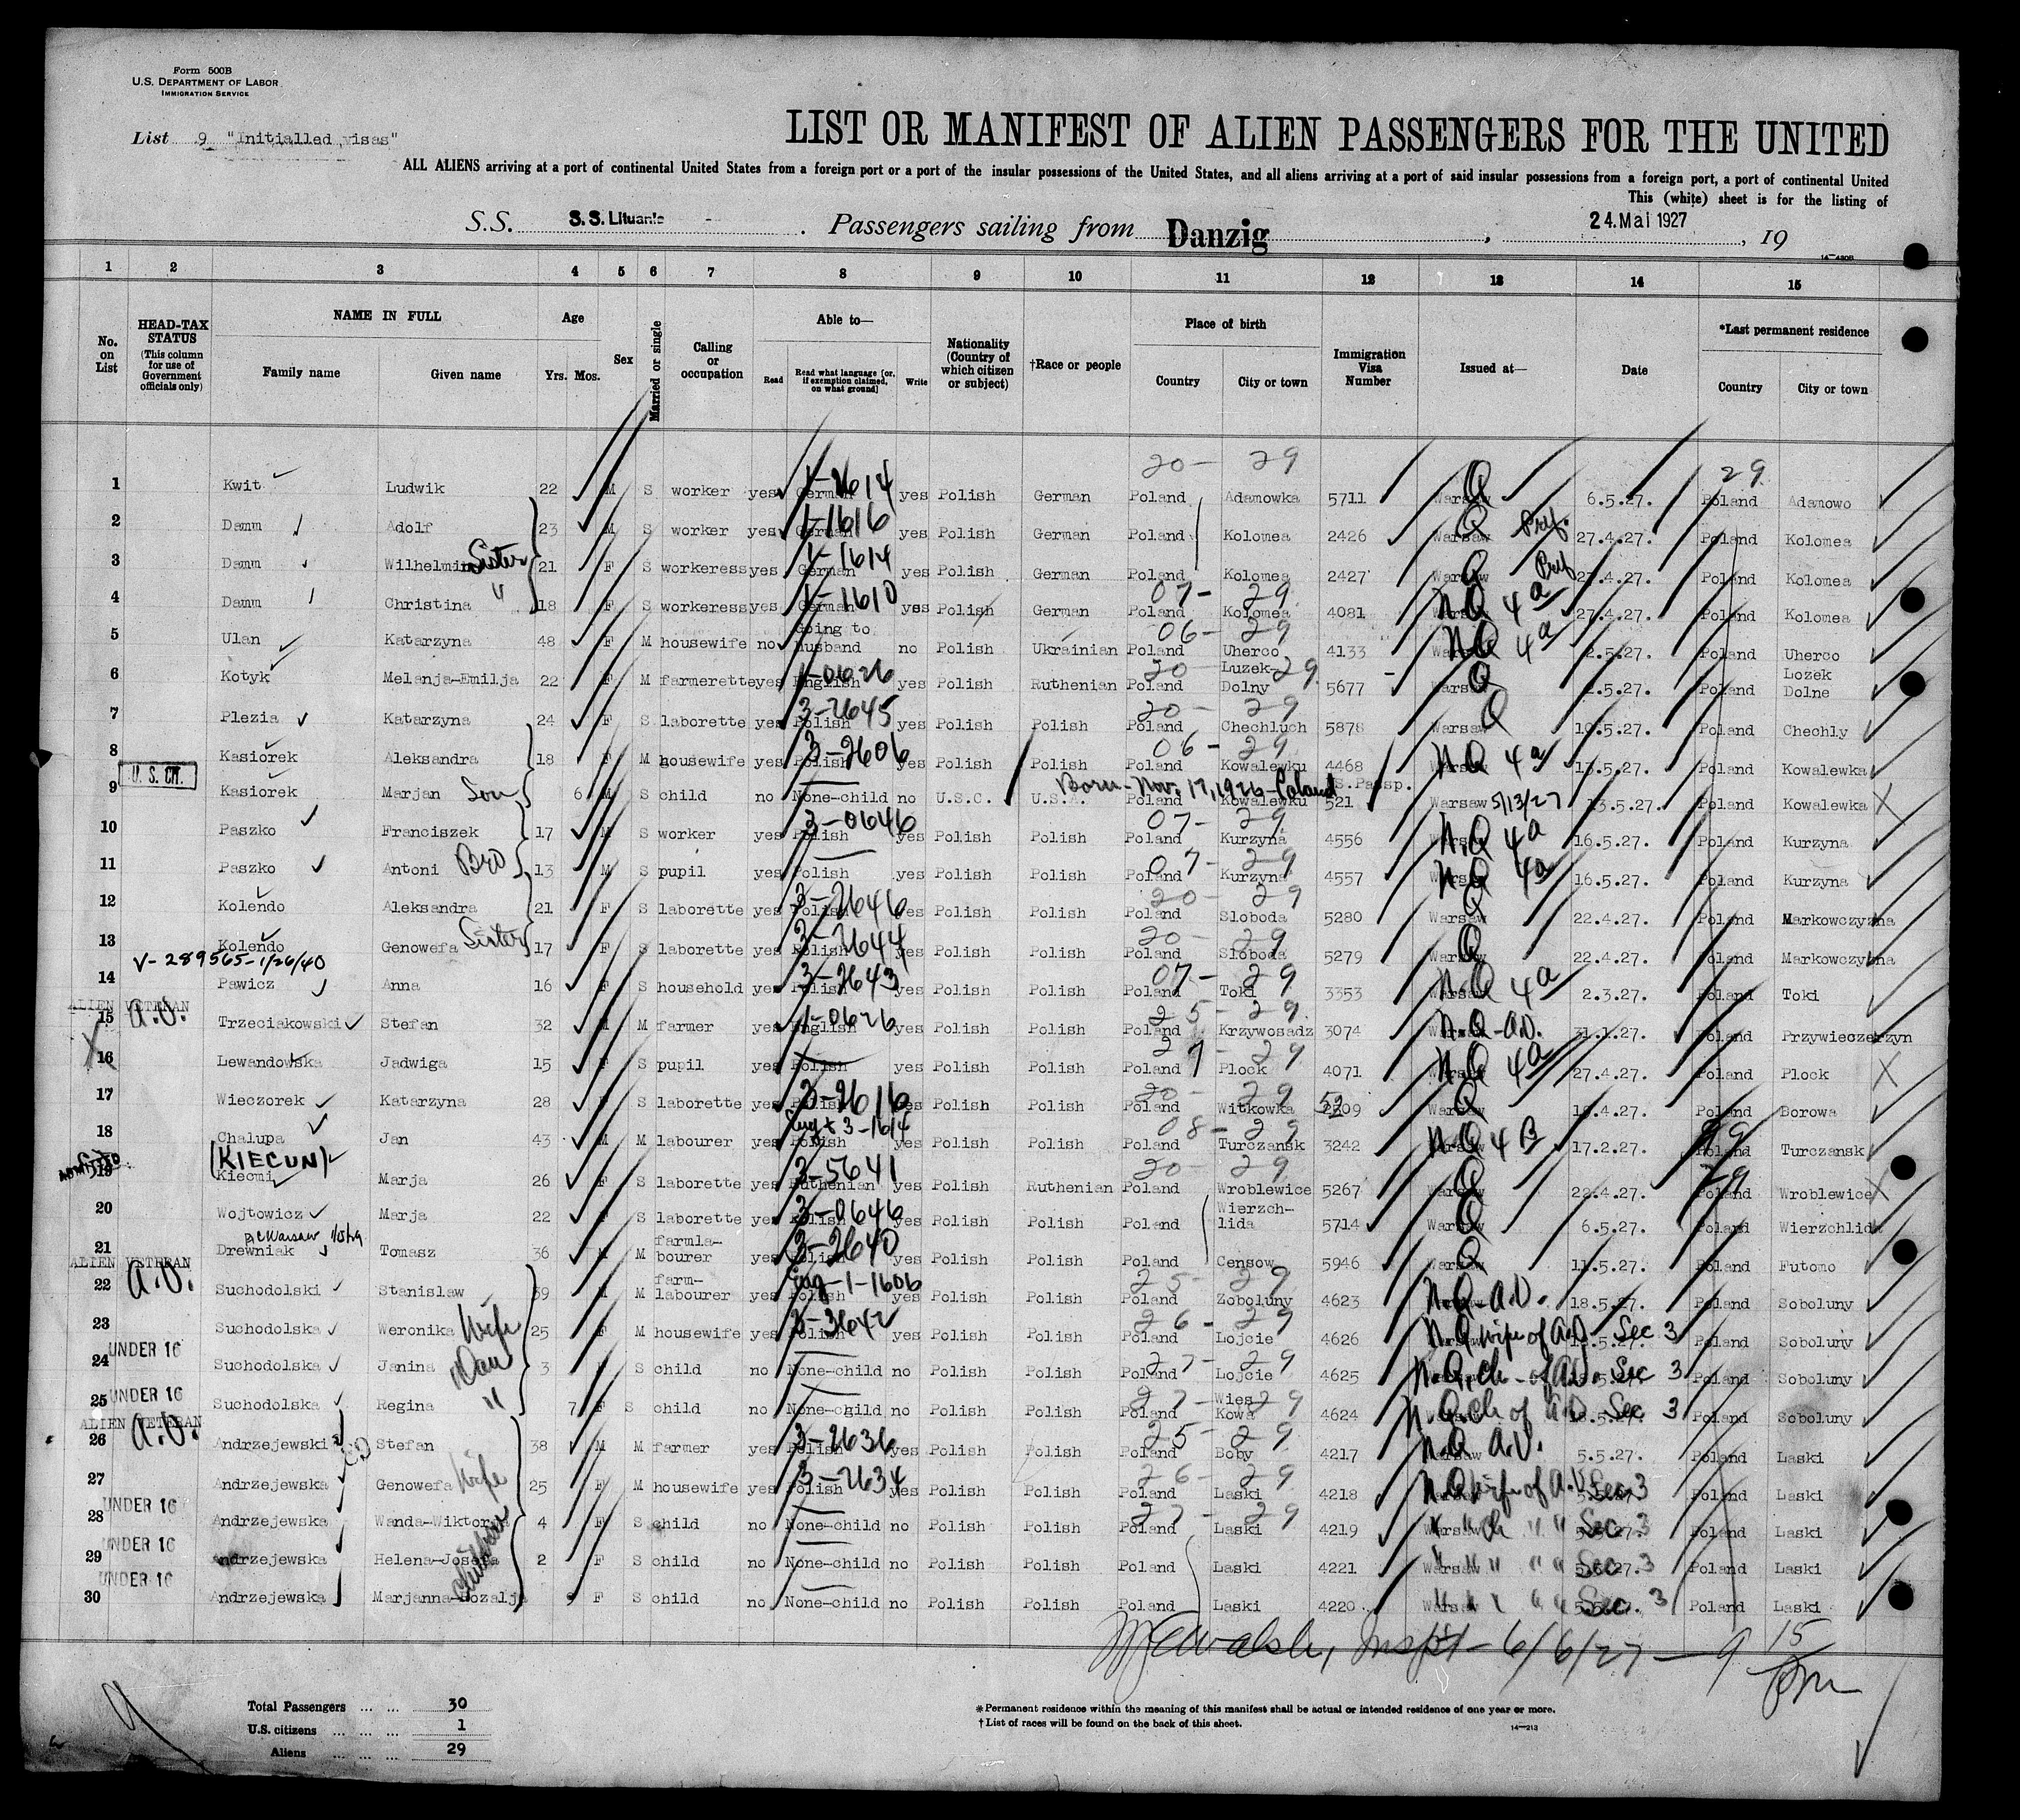 Form 500B
U.S. DEPARTMENT OF LABOR
IMMIGRATION SERVICE
List 9 "Initialled visas"
LIST OR MANIFEST OF ALIEN PASSENGERS FOR THE UNITED
ALL ALIENS arriving at a port of continental United States from a foreign port or a port of the insular possessions of the United States, and all aliens arriving at a port of said insular possessions from a foreign port, a port of continental United
This (white) sheet is for the listing of
S.S. S.S. Lituania . Passengers sailing from Danzig , 24. Mai 1927 , 19
1 2 3 4 5 6 7 8 9 10 11 12 13 14 15
No. on List
HEAD-TAX STATUS (This column for use of Government officials only)
NAME IN FULL
Family name Given name
Age
Yrs. Mos.
Sex
Married or single
Calling or occupation
Able to—
Read Read what language [or, if exemption claimed, on what ground] Write
Nationality (Country of which citizen or subject)
†Race or people
Place of birth
Country City or town
Immigration Visa Number
Issued at—
Date
*Last permanent residence
Country City or town
20- 29 29
1 Kwit Ludwik 22 M S worker yes German 1-2614 yes Polish German Poland Adamowka 5711 Warsaw Q 6.5.27. Poland Adamowo
2 Damm Adolf 23 M S worker yes German 1-1616 yes Polish German Poland Kolomea 2426 Warsaw Q Pref. 27.4.27. Poland Kolomea
3 Damm Wilhelmin Sister 21 F S workeress yes German 1-1614 yes Polish German Poland Kolomea 2427 Warsaw Q Pref 27.4.27. Poland Kolomea
4 Damm Christina " 18 F S workeress yes German 1-1610 yes Polish German Poland 07- 29 Kolomea 4081 Warsaw NQ 4a 27.4.27. Poland Kolomea
5 Ulan Katarzyna 48 F M housewife no Going to husband no Polish Ukrainian Poland 06- 29 Uherco 4133 Warsaw NQ 4a 2.5.27. Poland Uherco
6 Kotyk Melanja-Emilja 22 F M farmerette yes English 1-0626 yes Polish Ruthenian Poland 20 29 Luzek-Dolny 5677 Warsaw Q 2.5.27. Poland Lozek Dolne
7 Plezia Katarzyna 24 F S laborette yes Polish 3-2645 yes Polish Polish Poland 20- 29 Chechluch 5878 Warsaw Q 10.5.27. Poland Chechly
8 Kasiorek Aleksandra 18 F M housewife yes Polish 3-2606 yes Polish Polish Poland 06- 29 Kowalewku 4468 Warsaw NQ 4a 13.5.27. Poland Kowalewka
U.S. CIT.
9 Kasiorek Marjan Son 6 M S child no None-child no U.S.C. U.S.A. Born-Nov. 17, 1926-Poland Poland Kowalewku S.Passp. 521 Warsaw 5/13/27 13.5.27. Poland Kowalewka X
10 Paszko Franciszek 17 M S worker yes Polish 3-0646 yes Polish Polish Poland 07- 29 Kurzyna 4556 NQ 4a 16.5.27. Poland Kurzyna
11 Paszko Antoni Bro 13 M S pupil yes Polish yes Polish Polish Poland 07- 29 Kurzyna 4557 Warsaw NQ 4a 16.5.27. Poland Kurzyna
12 Kolendo Aleksandra 21 F S laborette yes Polish 3-2646 yes Polish Polish Poland 20- 29 Sloboda 5280 Warsaw Q 22.4.27. Poland Markowczyzna
13 Kolendo Genowefa Sister 17 F S laborette yes Polish 3-2644 yes Polish Polish Poland 20- 29 Sloboda 5279 Warsaw Q 22.4.27. Poland Markowczyzna
V-289565-1/26/40
14 Pawicz Anna 16 F S household yes Polish 3-2643 yes Polish Polish Poland 07- 29 Toki 3353 Warsaw NQ 4a 2.3.27. Poland Toki
ALIEN VETERAN A.V.
15 Trzeciakowski Stefan 32 M M farmer yes English 1-0626 yes Polish Polish Poland 25- 29 Krzywosadz 3074 Warsaw NQ-A.V. 31.1.27. Poland Przywieczerzyn
X 16 Lewandowska Jadwiga 15 F S pupil yes Polish yes Polish Polish Poland 27- 29 Plock 4071 Warsaw NQ 4a 27.4.27. Poland Plock X
17 Wieczorek Katarzyna 28 F S laborette yes Polish 3-2616 yes Polish Polish Poland 20- 29 Witkowka 52 Warsaw Q Poland Borowa
18 Chalupa Jan 43 M M labourer yes Polish Eng + 3-1614 yes Polish Polish Poland 08- 29 Turczansk 3242 Warsaw NQ 4B 17.2.27. Poland Turczansk
ADMITTED (KIECUN)
19 Kiecmi Marja 26 F S laborette yes Ruthenian 3-5641 yes Polish Ruthenian Poland 20- 29 Wroblewice 5267 Warsaw Q 22.4.27. Poland 29 Wroblewice X
20 Wojtowicz Marja 22 F S laborette yes Polish 3-0646 yes Polish Polish Poland Wierzch-lida 5714 Warsaw Q 6.5.27. Poland Wierzchlida
21 Drewniak Tomasz 36 M M farmla-bourer yes Polish 3-2640 yes Polish Polish Poland Censow 5946 Warsaw Q 11.5.27. Poland Futomo
ALIEN VETERAN A.V.
22 Suchodolski Stanislaw 39 M M farm-labourer yes Polish Eng-1-1606 yes Polish Polish Poland 25- 29 Zoboluny 4623 NQ-A.V. 18.5.27. Poland Soboluny
23 Suchodolska Weronika Wife 25 F M housewife yes Polish 3-3642 yes Polish Polish Poland 26- 29 Lojcie 4626 NQ wife of A.V. Sec 3 Poland Soboluny
UNDER 16
24 Suchodolska Janina Dau 3 F S child no None-child no Polish Polish Poland 27- 29 Lojcie 4625 NQ ch- of A.V. Sec 3 Poland Soboluny
UNDER 16
25 Suchodolska Regina " 7 F S child no None-child no Polish Polish Poland 27- 29 Wies Kowa 4624 NQ ch of A.V. Sec 3 Poland Soboluny
ALIEN VETERAN A.V.
26 Andrzejewski Stefan 38 M M farmer yes Polish 3-2636 yes Polish Polish Poland 25- 29 Boby 4217 Warsaw NQ A.V. 5.5.27. Poland Laski
27 Andrzejewska Genowefa Wife 25 F M housewife yes Polish 3-2634 yes Polish Polish Poland 26- 29 Laski 4218 NQ wife of A.V. Sec 3 Poland Laski
UNDER 16
28 Andrzejewska Wanda-Wiktorja 4 F S child no None-child no Polish Polish Poland 27- 29 Laski 4219 Warsaw " ch " " Sec 3 Poland Laski
UNDER 16
29 Andrzejewska Helena-Josefa Children 2 F S child no None-child no Polish Polish Poland Laski 4221 Warsaw " " " " Sec 3 Poland Laski
UNDER 16
30 Andrzejewska Marjanna-Rozalja F S child no None-child no Polish Polish Poland Laski 4220 Warsaw " " " " Sec. 3 Poland Laski
Walsh, Inspt- 6/6/27 - 9 15 pm
Total Passengers ... ... 30
U.S. citizens ... ... ... 1
Aliens ... ... ... 29
* Permanent residence within the meaning of this manifest shall be actual or intended residence of one year or more.
† List of races will be found on the back of this sheet.
14—213